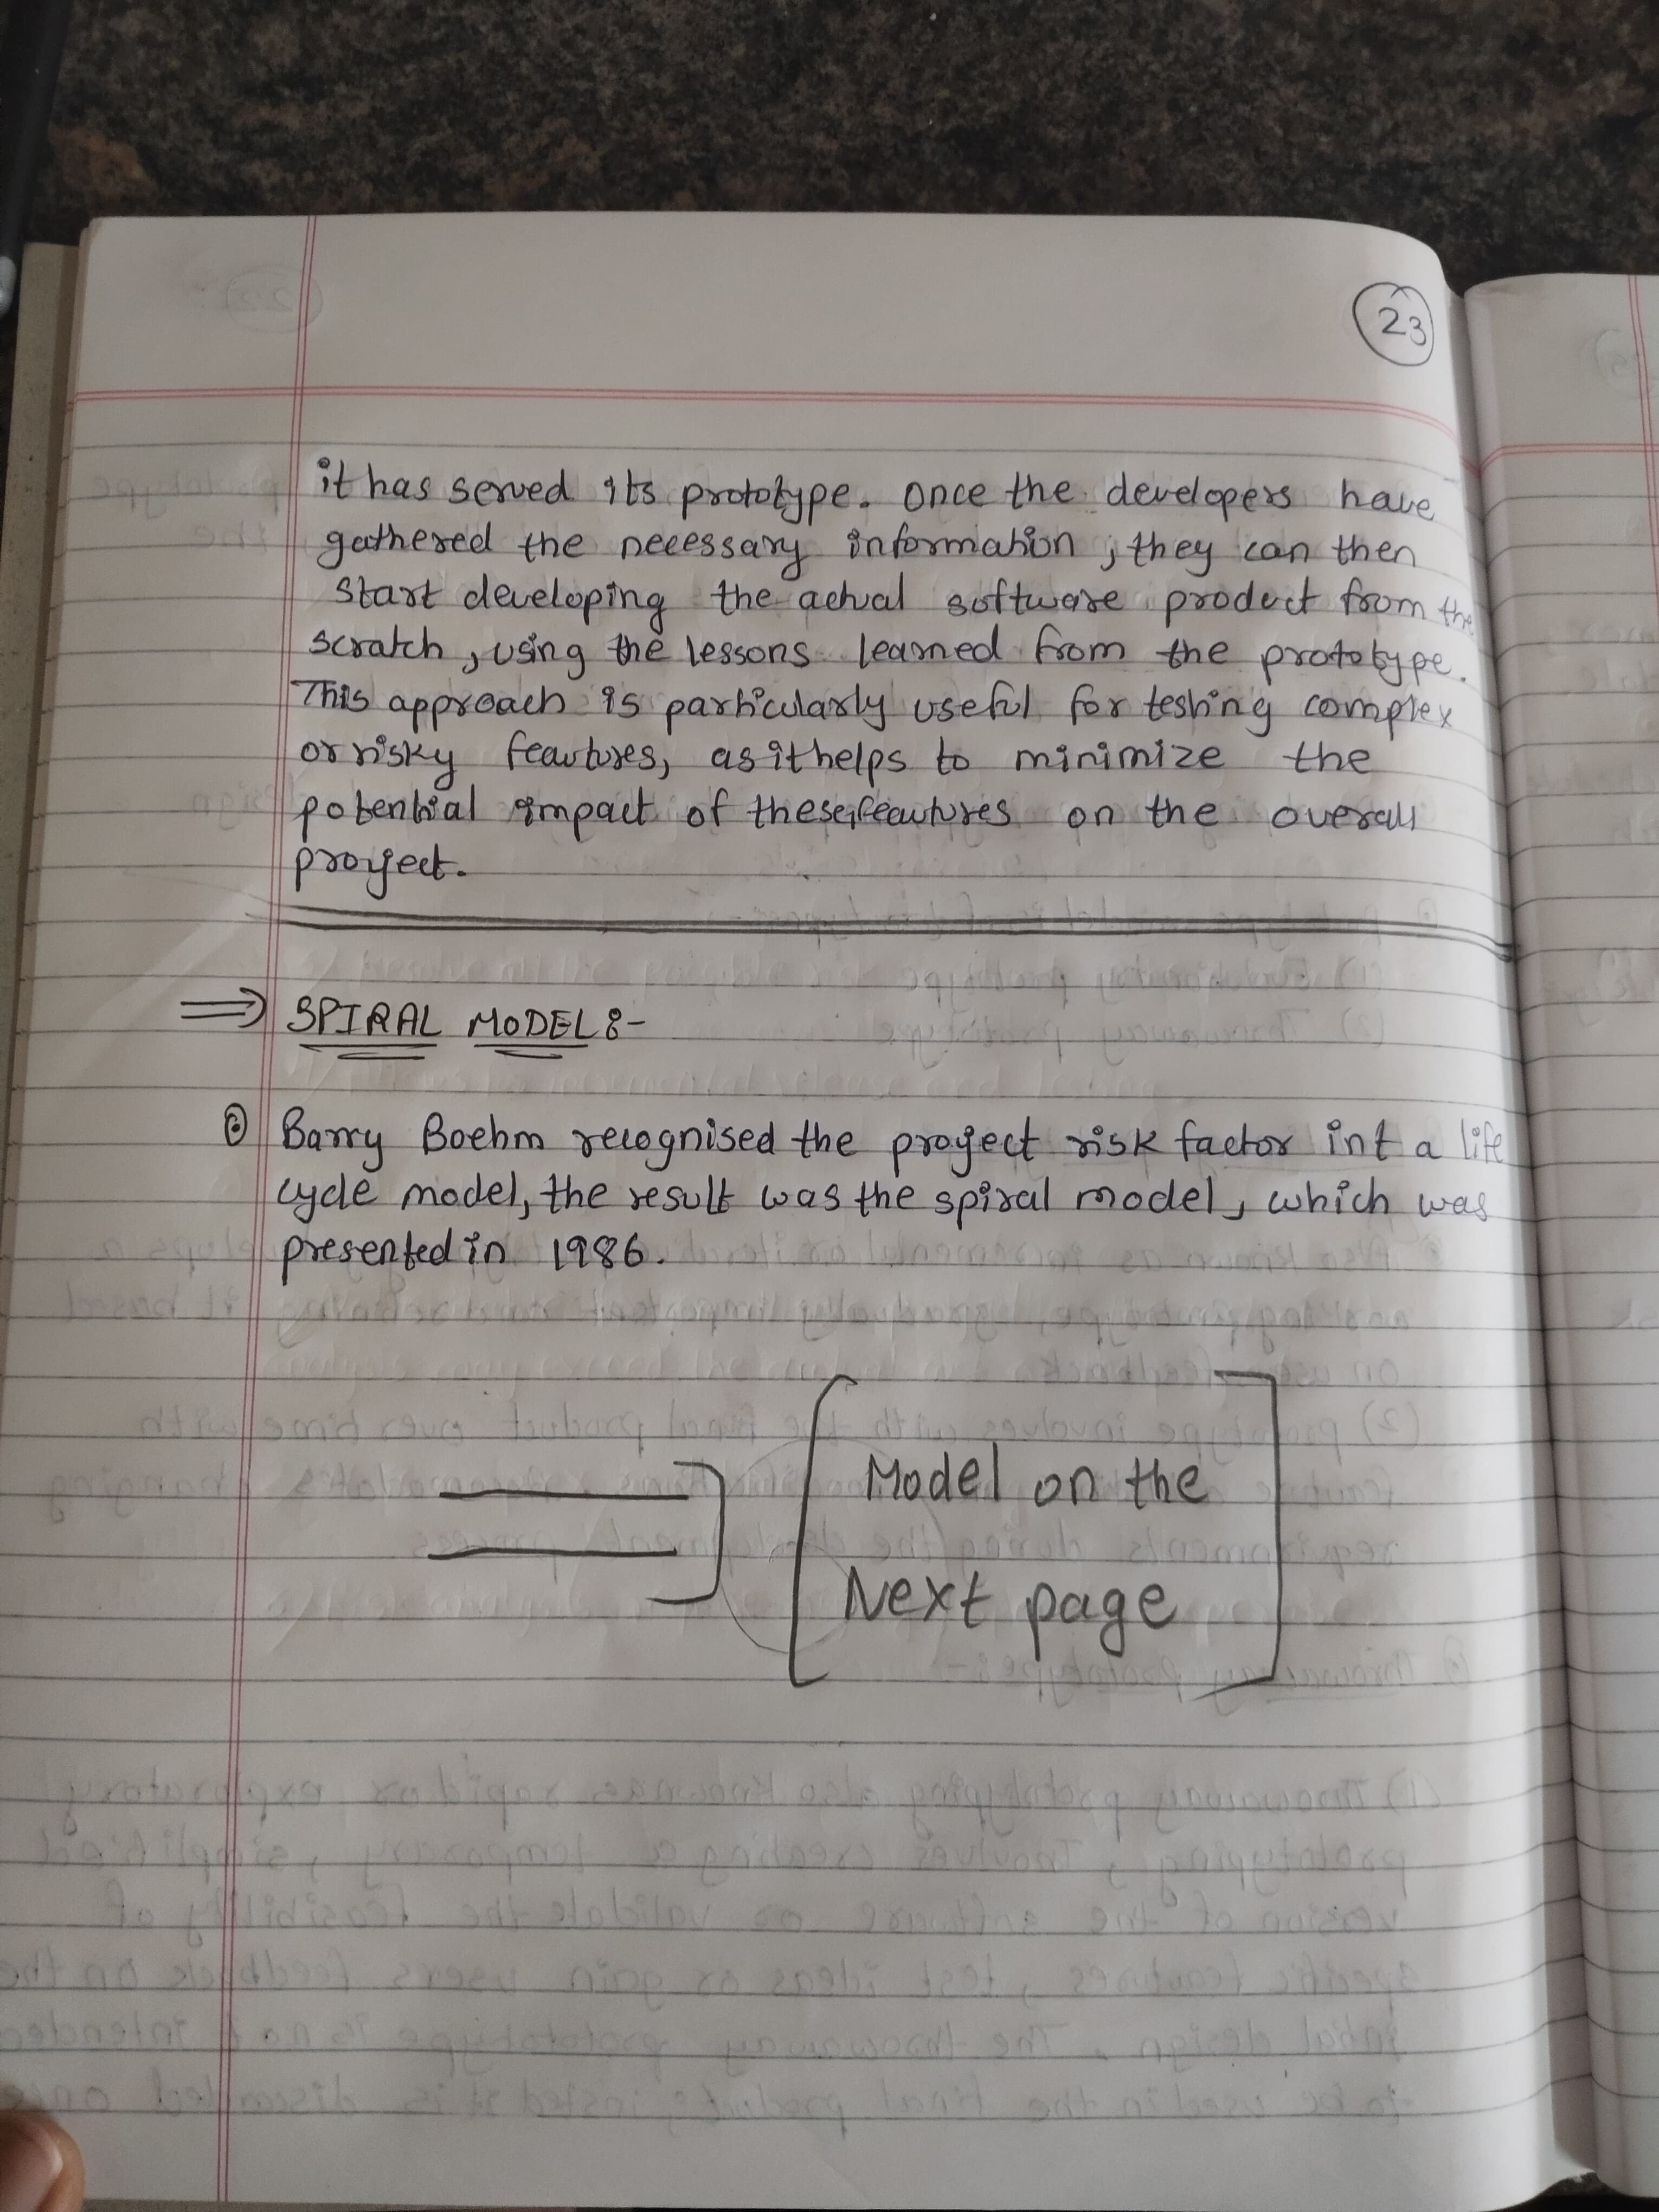 23
it has served its prototype. Once the developers have
gathered the necessary information, they can then
start developing the actual software product from the
scratch, using the lessons learned from the prototype.
This approach is particularly useful for testing complex
or risky features, as it helps to minimize the
potential impact of these features on the overall
project.
⇒ SPIRAL MODEL :-
Barry Boehm recognised the project risk factor int a life
cycle model, the result was the spiral model, which was
presented in 1986.
Model on the
Next page